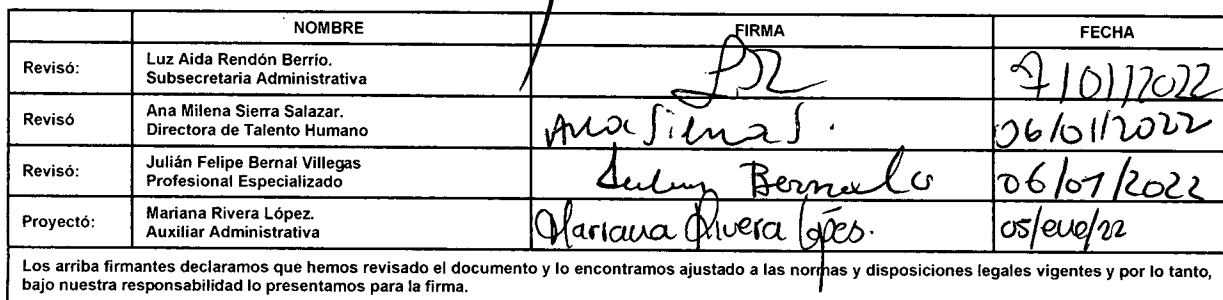 NOMBRE FIRMA FECHA
Revisó: Luz Aida Rendón Berrío.
Subsecretaria Administrativa
7/01/2022
Revisó Ana Milena Sierra Salazar.
Directora de Talento Humano
Ana Sierra S. 06/01/2022
Revisó: Julián Felipe Bernal Villegas
Profesional Especializado
Bernal 06/01/2022
Proyectó: Mariana Rivera López.
Auxiliar Administrativa
Mariana Rivera López. 05/ene/22
Los arriba firmantes declaramos que hemos revisado el documento y lo encontramos ajustado a las normas y disposiciones legales vigentes y por lo tanto,
bajo nuestra responsabilidad lo presentamos para la firma.